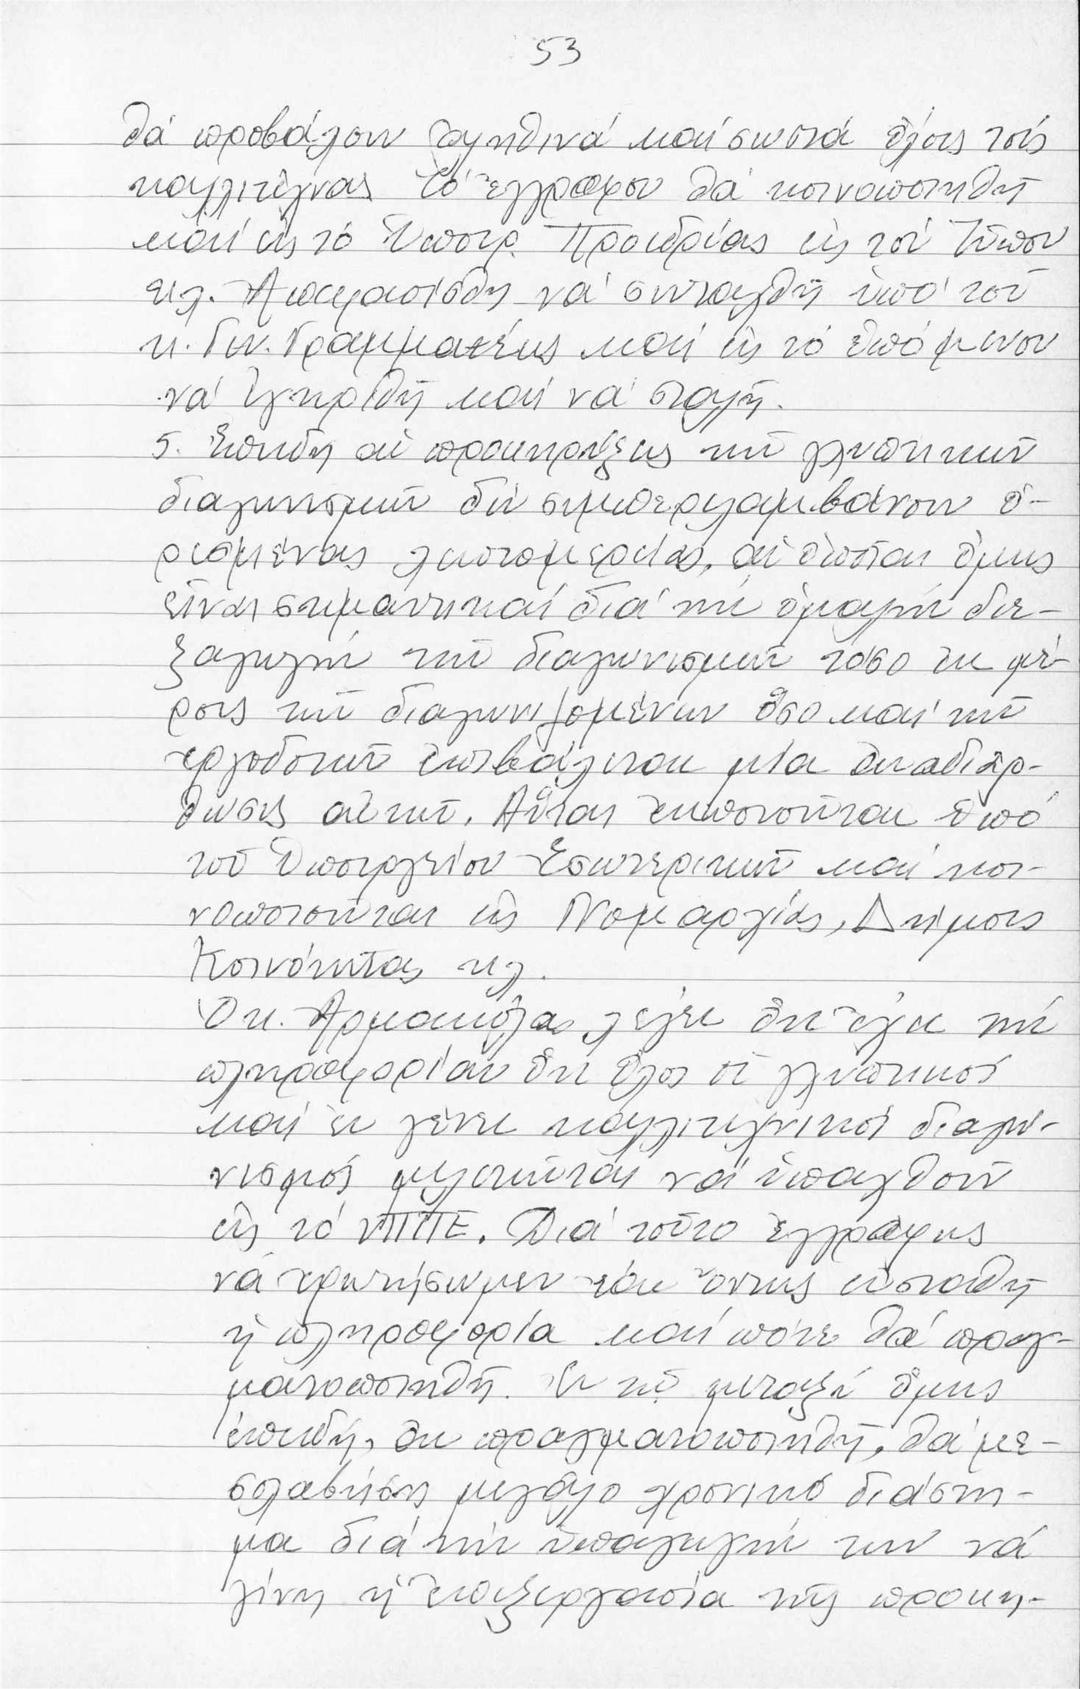 53
θά προβάλουν ἀληθινά καί σωστά ὅλους τούς
καλλιτέχνας. Τό ἔγγραφον θά κοινοποιηθῆ
καί εἰς τό Ὑπουρ. Προεδρίας εἰς τόν Τύπον
κλ. Ἀπεφασίσθη νά συνταχθῆ ὑπό τοῦ
κ. Γεν. Γραμματέως καί εἰς τό ἑπόμενον
νά ἐγκριθῆ καί νά σταλῆ.
5. Ἐπειδή αἱ προκηρύξεις τῶν γλυπτικῶν
διαγωνισμῶν δέν συμπεριλαμβάνουν ὁ-
ρισμένας λεπτομερείας, αἱ ὁποῖαι ὅμως
εἶναι σημαντικαί διά τήν ὁμαλήν διε-
ξαγωγήν τῶν διαγωνισμῶν τόσο ἐκ μέ-
ρους τῶν διαγωνιζομένων ὅσο καί τῶν
ἐργοδοτῶν ἐπιβάλλεται μία ἀναδιάρ-
θωσις αὐτῶν. Αὗται ἐκπονοῦνται ὑπό
τοῦ Ὑπουργείου Ἐσωτερικῶν καί κοι-
νοποιοῦνται εἰς Νομαρχίας, Δήμους
Κοινότητας κλ.
Ὁ κ. Ἀρμακόλας λέγει ὅτι ἔχει τήν
πληροφορίαν ὅτι ὅλοι οἱ γλυπτικοί
καί ἐν γένει καλλιτεχνικοί διαγω-
νισμοί μελετῶνται νά ὑπαχθοῦν
εἰς τό ΥΠΠΕ. Διά τοῦτο ἐγγράφως
νά ἐρωτήσωμεν ἐάν ὄντως εὐσταθῆ
ἡ πληροφορία καί πότε θά πραγ-
ματοποιηθῆ. Ἐν τῷ μεταξύ ὅμως
ἐπειδή, ἄν πραγματοποιηθῆ, θά με-
σολαβήση μεγάλο χρονικό διάστη-
μα διά τήν ὑπαγωγήν των νά
γίνη ἡ ἐπεξεργασία τῆς προκη-